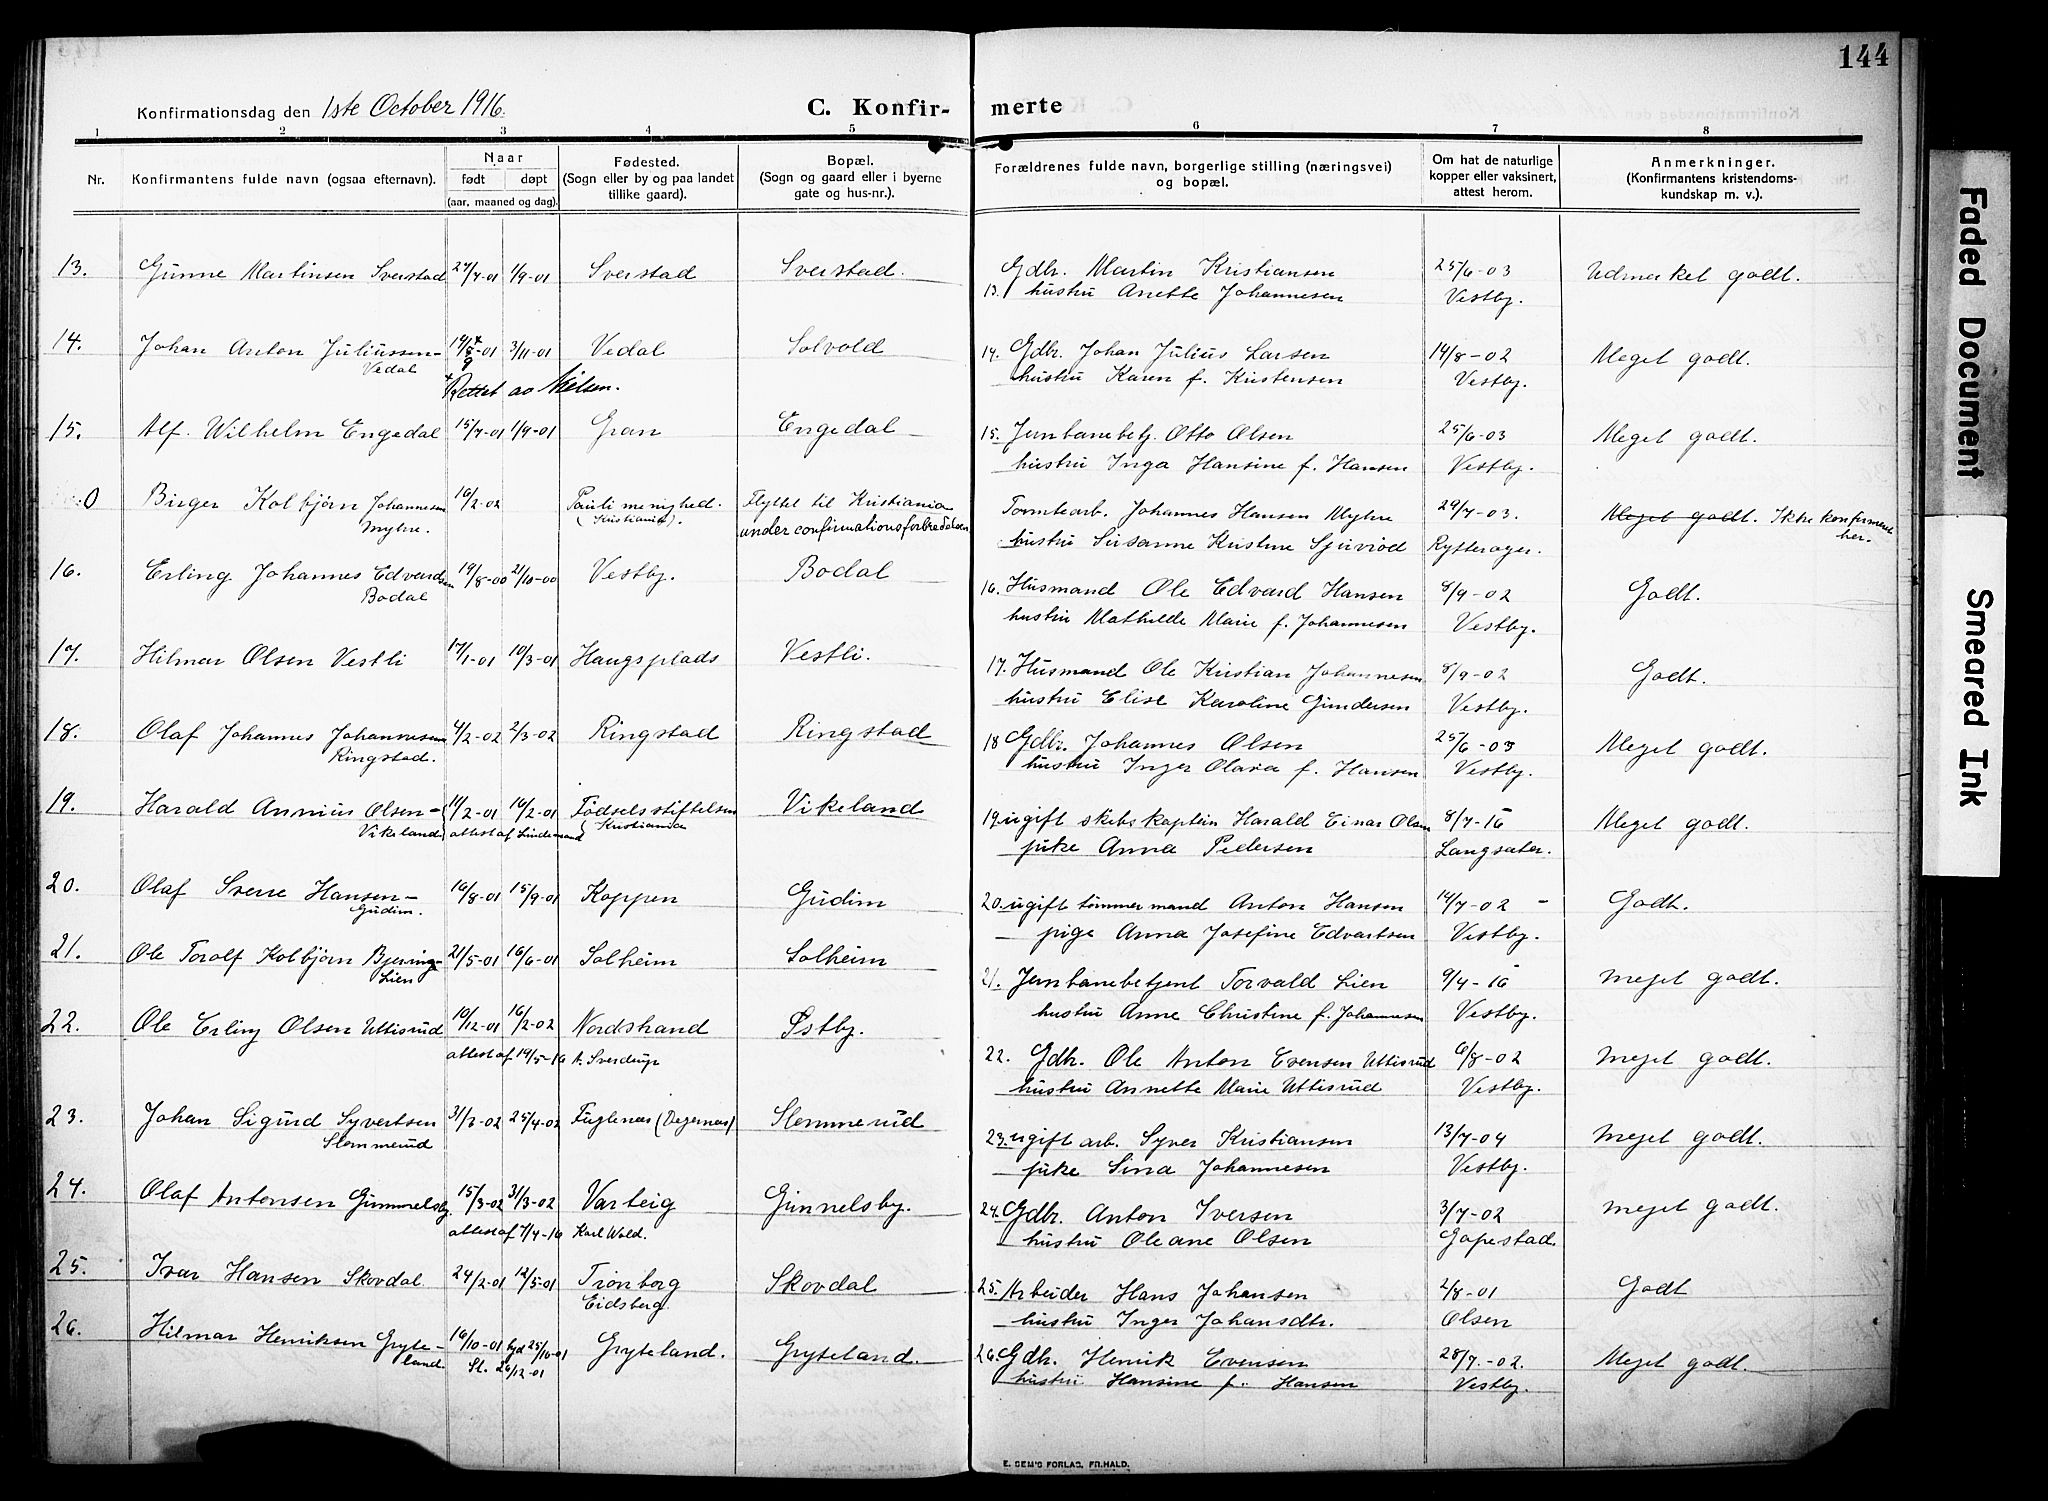 144
Konfirmationsdag den 1ste October 1916.
C. Konfir- merte
1 2 3 4 5 6 7 8
Nr. Konfirmantens fulde navn (ogsaa efternavn). Naar født døpt (aar, maaned og dag). Fødested. (Sogn eller by og paa landet tillike gaard). Bopæl. (Sogn og gaard eller i byerne gate og hus-nr.). Forældrenes fulde navn, borgerlige stilling (næringsvei) og bopæl. Om hat de naturlige kopper eller vaksinert, attest herom. Anmerkninger. (Konfirmantens kristendoms-kundskap m. v.).
13. Gunne Martinsen Sverstad 27/7-01 1/9-01 Sverstad Sverstad. Gdbr. Martin Kristiansen 25/6-03 Udmerket godt.
13. hustru Anette Johannesen Vestby.
14. Johan Anton Juliussen- 3/11-01 Vedal Solvold 14. Gdbr. Johan Julius Larsen 14/8-02 Meget godt.
Vedal hustru Karen f. Kristensen Vestby.
Rettet av Nielsen.
15. Alf. Wilhelm Engedal 15/7-01 1/9-01 Gran Engedal 15. Jernbanebetj. Otto Olsen 25/6-03 Meget godt.
hustru Inga Hansine f. Hansen Vestby.
0 Birger Kolbjörn Johannesen 16/2-02 Pauli menighed. Flyttet til Kristiania Tomtearb. Johannes Hansen Myhre 29/7-03. Meget godt. Ikke konfirmeret
Myhre. (Kristiania). under confirmationsforberedelsen hustru Susanne Kristine Rytterager. her.
16. Erling Johannes Edvardsen 19/8-00 21/10-00 Vestby. Bodal 16. Husmand Ole Edvard Hansen 8/9-02 Godt.
Bodal hustru Mathilde Marie f. Johannesen Vestby.
17. Hilmar Olsen Vestli 17/1-01 10/3-01 Haugsplads Vestli. 17. Husmand Ole Kristian Johannesen 8/9-02 Godt.
hustru Elise Karoline Gundersen Vestby.
18. Olaf Johannes Johannesen 4/2-02 2/3-02 Ringstad Ringstad 18 Gdbr. Johannes Olsen 25/6-03 Meget godt.
Ringstad. hustru Inger Olava f. Hansen Vestby.
19. Harald Annius Olsen- 11/2-01 16/2-01 Fødselsstiftelsen Vikeland 19. ugift skibskaptein Harald Einar Olsen 8/7-16 Meget godt.
Vikeland attest af Lindemand (Kristiania pike Anna Pedersen Langsæter.
20. Olaf Sverre Hansen- 16/8-01 15/9-01 Koppen Gudim 20. ugift tømmermand Anton Hansen 14/7-02 - Godt.
Gudim. pige Anna Josefine Edvartsen Vestby.
21. Ole Torolf Kolbjörn Bjerring- 21/5-01 16/6-01 Solheim Solheim 21. Jernbanebetjent Torvald Lien 9/4-16 Meget godt.
Lien hustru Anne Christine f. Johannesen Vestby.
22. Ole Erling Olsen Uttisrud 10/12-01 16/2-02 Nordstrand Østby. 22. Gdb. Ole Anton Evensen Uttisrud 6/8-02 Meget godt.
attest af 19/5-16 A. Sverdrup hustru Annette Marie Uttisrud Vestby.
23. Johan Sigurd Syvertsen 31/3-02 25/4-02 Fuglenæs (Degernæs) Slommerud 23. ugift arb. Syver Kristiansen 13/7-04 Meget godt.
Slommerud pike Sina Johannesen Vestby.
24. Olaf Antonsen Gimmelsby. 15/3-02 31/3-02 Varteig Gimmelsby. 24. Gdbr. Anton Iversen 3/7-02 Meget godt.
attest af 7/4-16 Karl Wold. hustru Oleane Olsen Gapestad.
25. Ivar Hansen Skovdal. 24/2-01 12/5-01 Trönborg Skovdal 25. Arbeider Hans Johansen 2/8-01 Godt
Eidsberg. hustru Inger Johansdtr. Olsen
26. Hilmar Henriksen Gryte- 16/10-01 hjd 25/10-01 Gryteland. Gryteland. 26. Gdb. Henrik Evensen 28/7.-02. Meget godt.
land St. 26/12-01 hustru Hansine f. Hansen Vestby.
E. SEM'S FORLAG, FR.HALD.
Faded Document
Smeared Ink